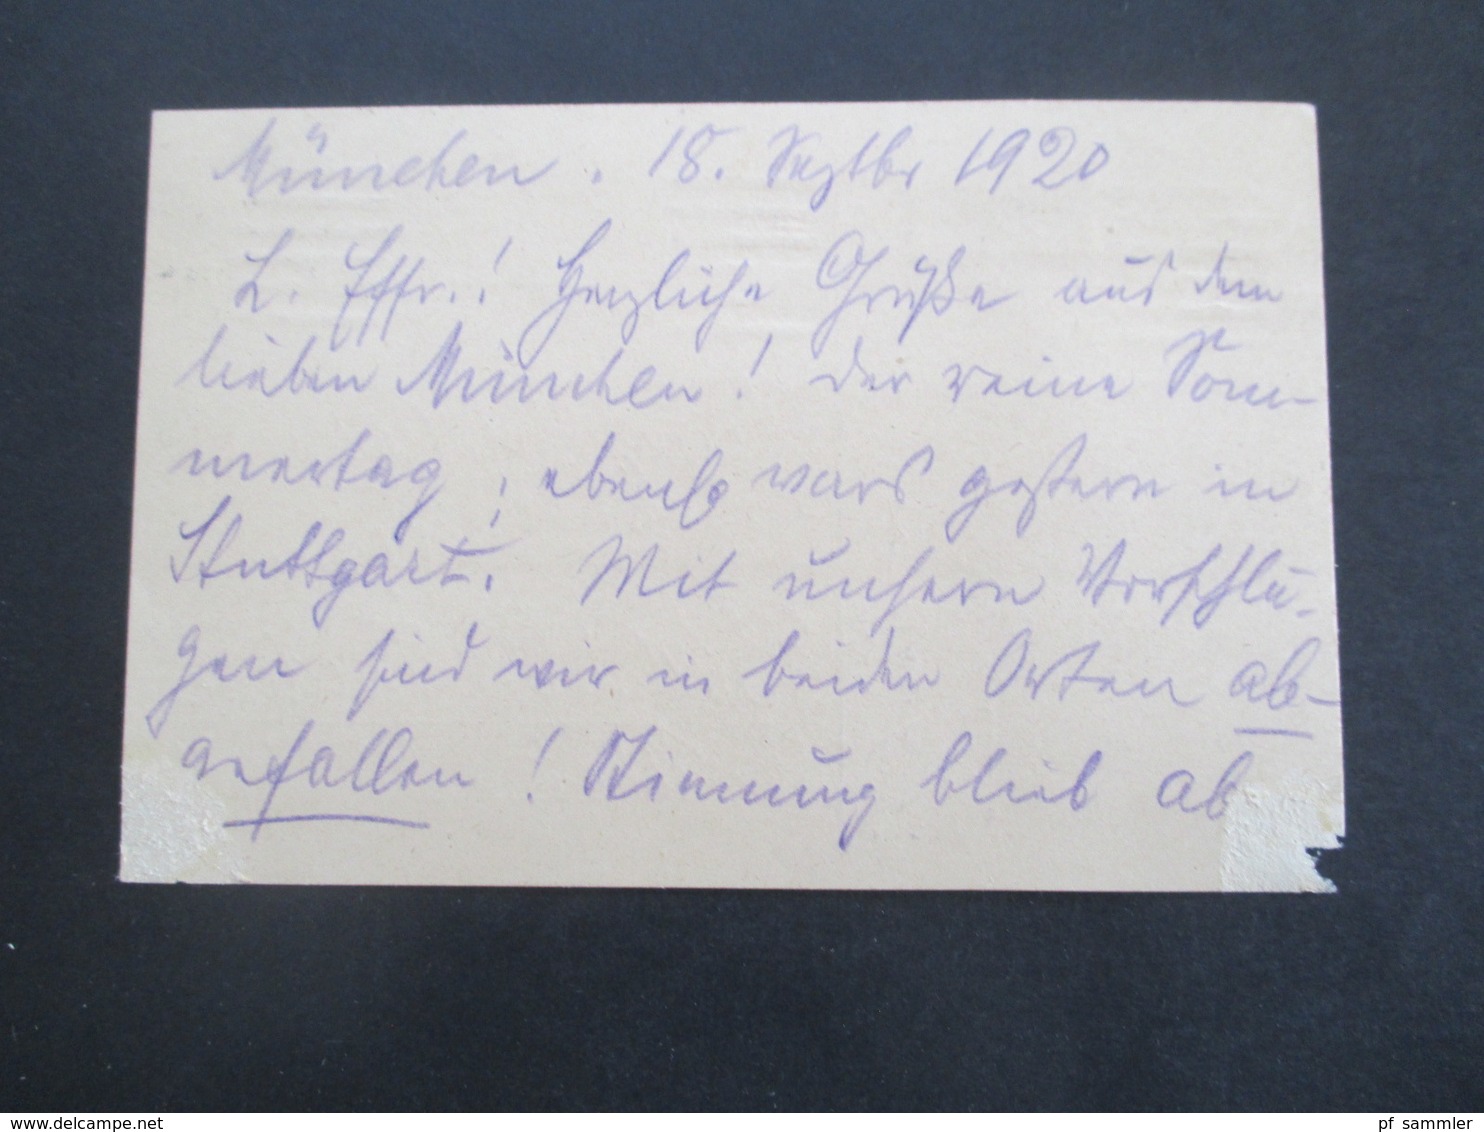 München. 18. Septbr 1920
L. Effr.! Herzliche Grüße aus dem
lieben München! der reine Som-
mertag, ebenso wars gestern in
Stuttgart. Mit unsern Vorschlä-
gen sind wir in beiden Orten ab-
gefallen! Stimmung blieb ab
delcampe.net
pf_sammler